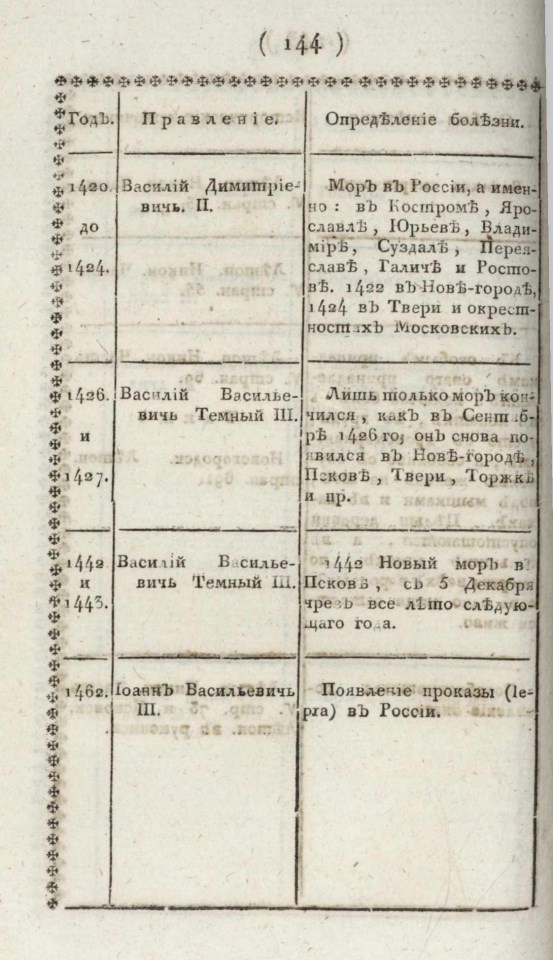 ( 144 )
Годъ.
Правленіе.
Опредѣленіе болѣзни.
1420.
до
1424.
Василій Димитріе-
вичь. II.
Моръ въ Россіи, а имен-
но: въ Костромѣ, Яро-
славлѣ, Юрьевѣ, Влади-
мірѣ, Суздалѣ, Перея-
славѣ, Галичѣ и Росто-
вѣ. 1422 въ Новѣ-городѣ,
1424 въ Твери и окрест-
ностяхъ Московскихъ.
1426.
и
1427.
Василій Василье-
вичь Темный III.
Лишь только моръ кон-
чился, какъ въ Сентяб-
рѣ 1426 го, онъ снова по-
явился въ Новѣ-городѣ,
Псковѣ, Твери, Торжкѣ
и пр.
1442
и
1443.
Василій Василье-
вичь Темный III.
1442 Новый моръ в
Псковѣ, съ 5 Декабря
чрезъ все лѣто слѣдую-
щаго года.
1462.
Іоаннъ Васильевичь
III.
Появленіе проказы (le-
pra) въ Россіи.